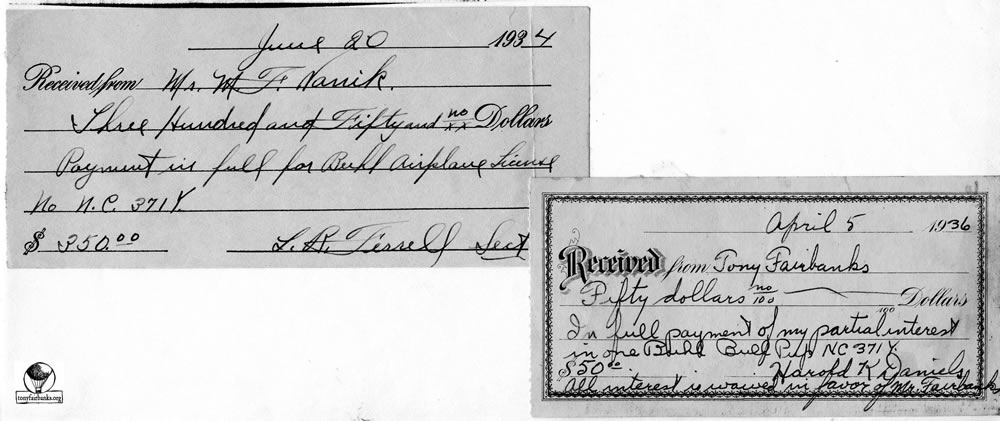 June 20 1934
Received from Mr. M. F. Vanik.
Three Hundred and Fifty and no/xx Dollars
Payment in full for Buhl Airplane License
No N.C. 371Y.
$ 350.00 L. R. Terrell Sect
April 5 1936
Received from Tony Fairbanks
Fifty dollars no/100 Dollars
In full payment of my partial interest
in one Buhl Bull Pup NC 371Y.
$50.00 Harold K Daniels
All interest is waived in favor of Mr. Fairbanks
tonyfairbanks.org